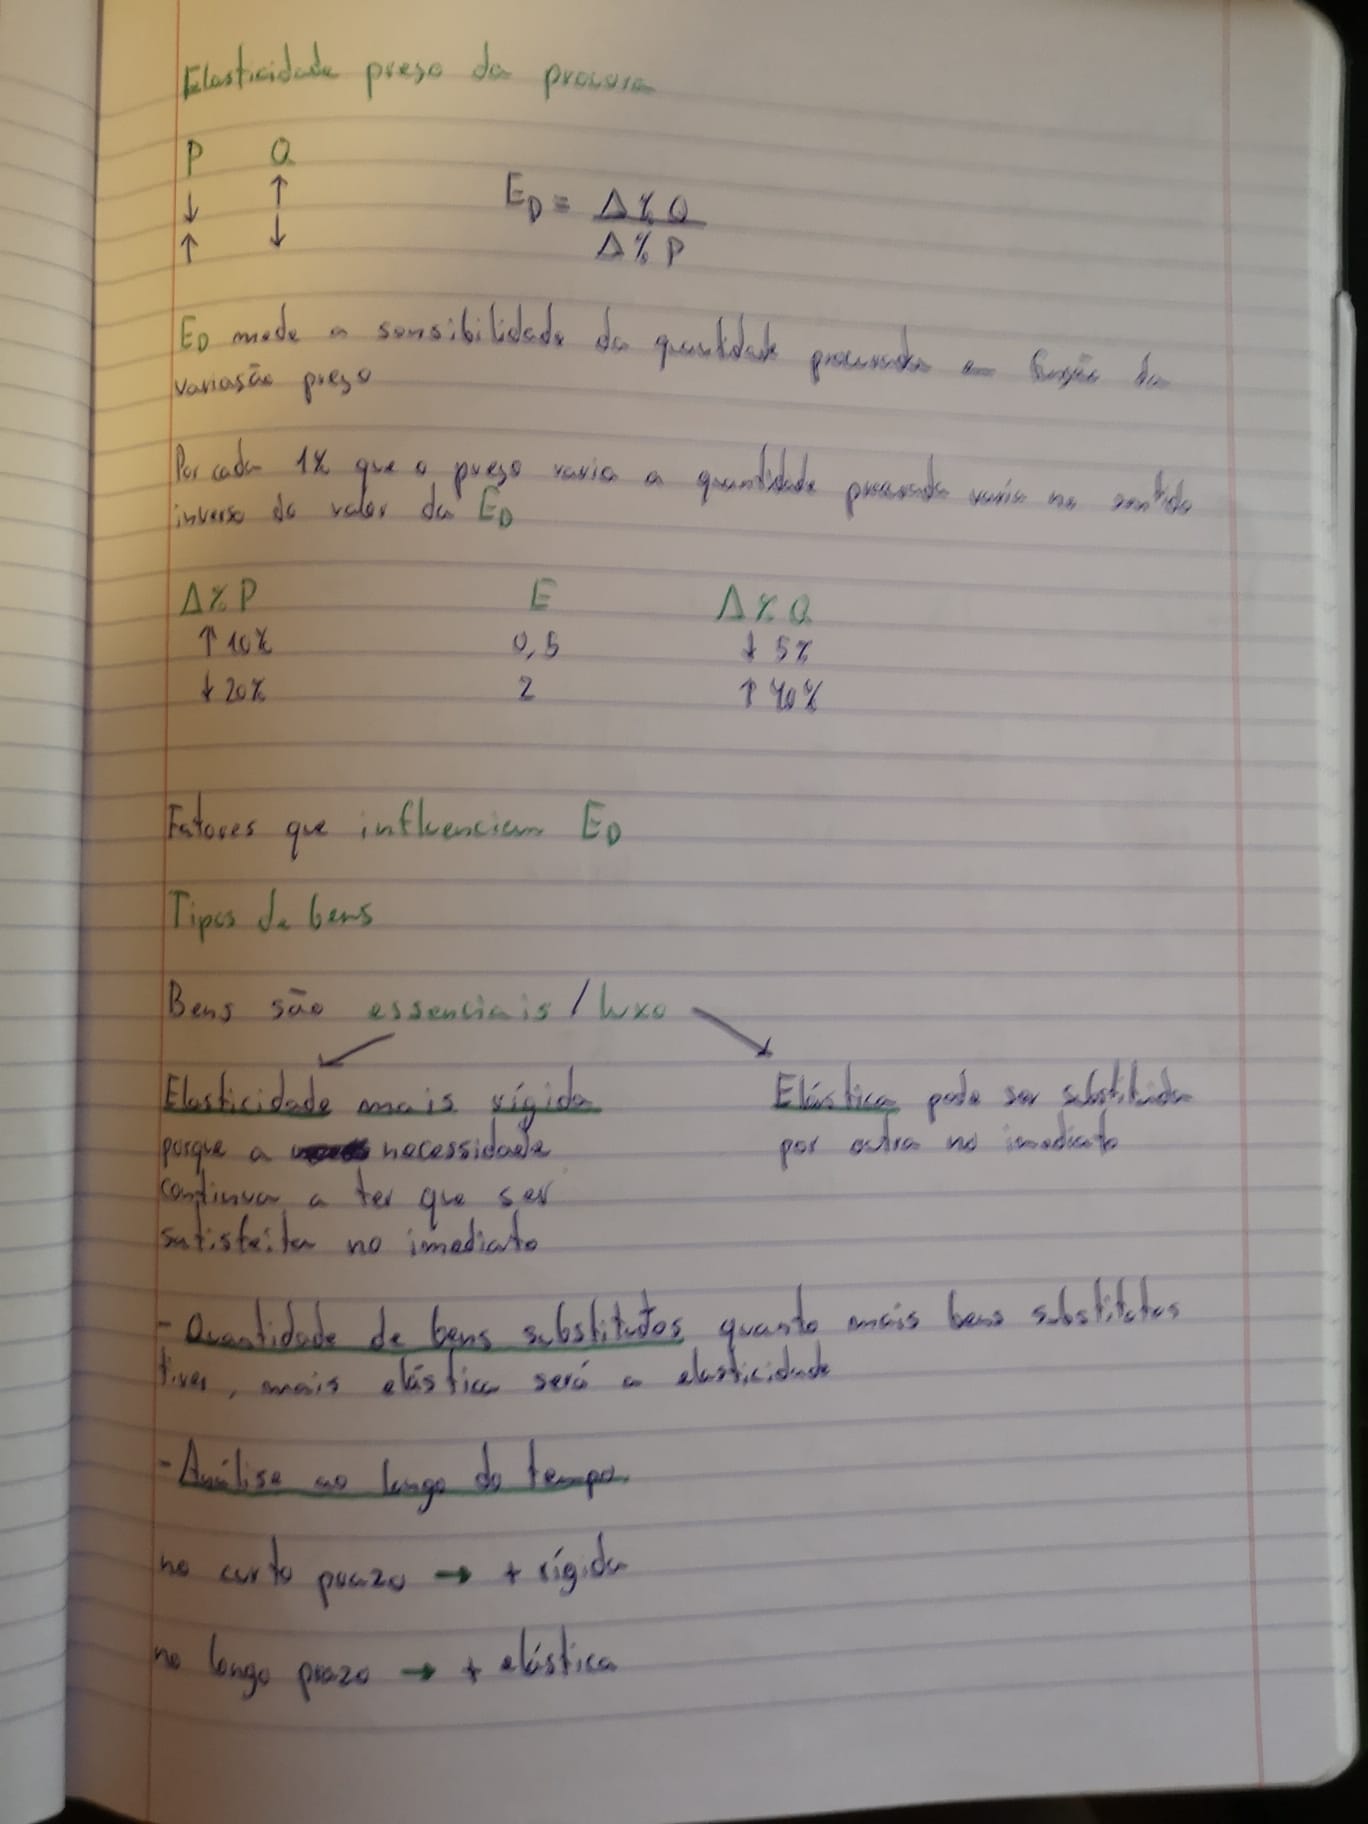 Elasticidade preço da procura
P Q
↓ ↑
↑ ↓
E_D = Δ%Q / Δ%P
E_D mede a sensibilidade da quantidade procurada em função da
variação preço
Por cada 1% que o preço varia a quantidade procurada varia no sentido
inverso do valor da E_D
Δ%P E Δ%Q
↑ 10% 0,5 ↓ 5%
↓ 20% 2 ↑ 40%
Fatores que influenciam E_D
Tipos de bens
Bens são essenciais / luxo
Elasticidade mais rígida
porque a necessidade
continua a ter que ser
satisfeita no imediato
Elástica pode ser substituida
por outra no imediato
- Quantidade de bens substitutos quanto mais bens substitutos
tiver, mais elástica será a elasticidade
- Análise ao longo do tempo
no curto prazo → + rígida
no longo prazo → + elástica